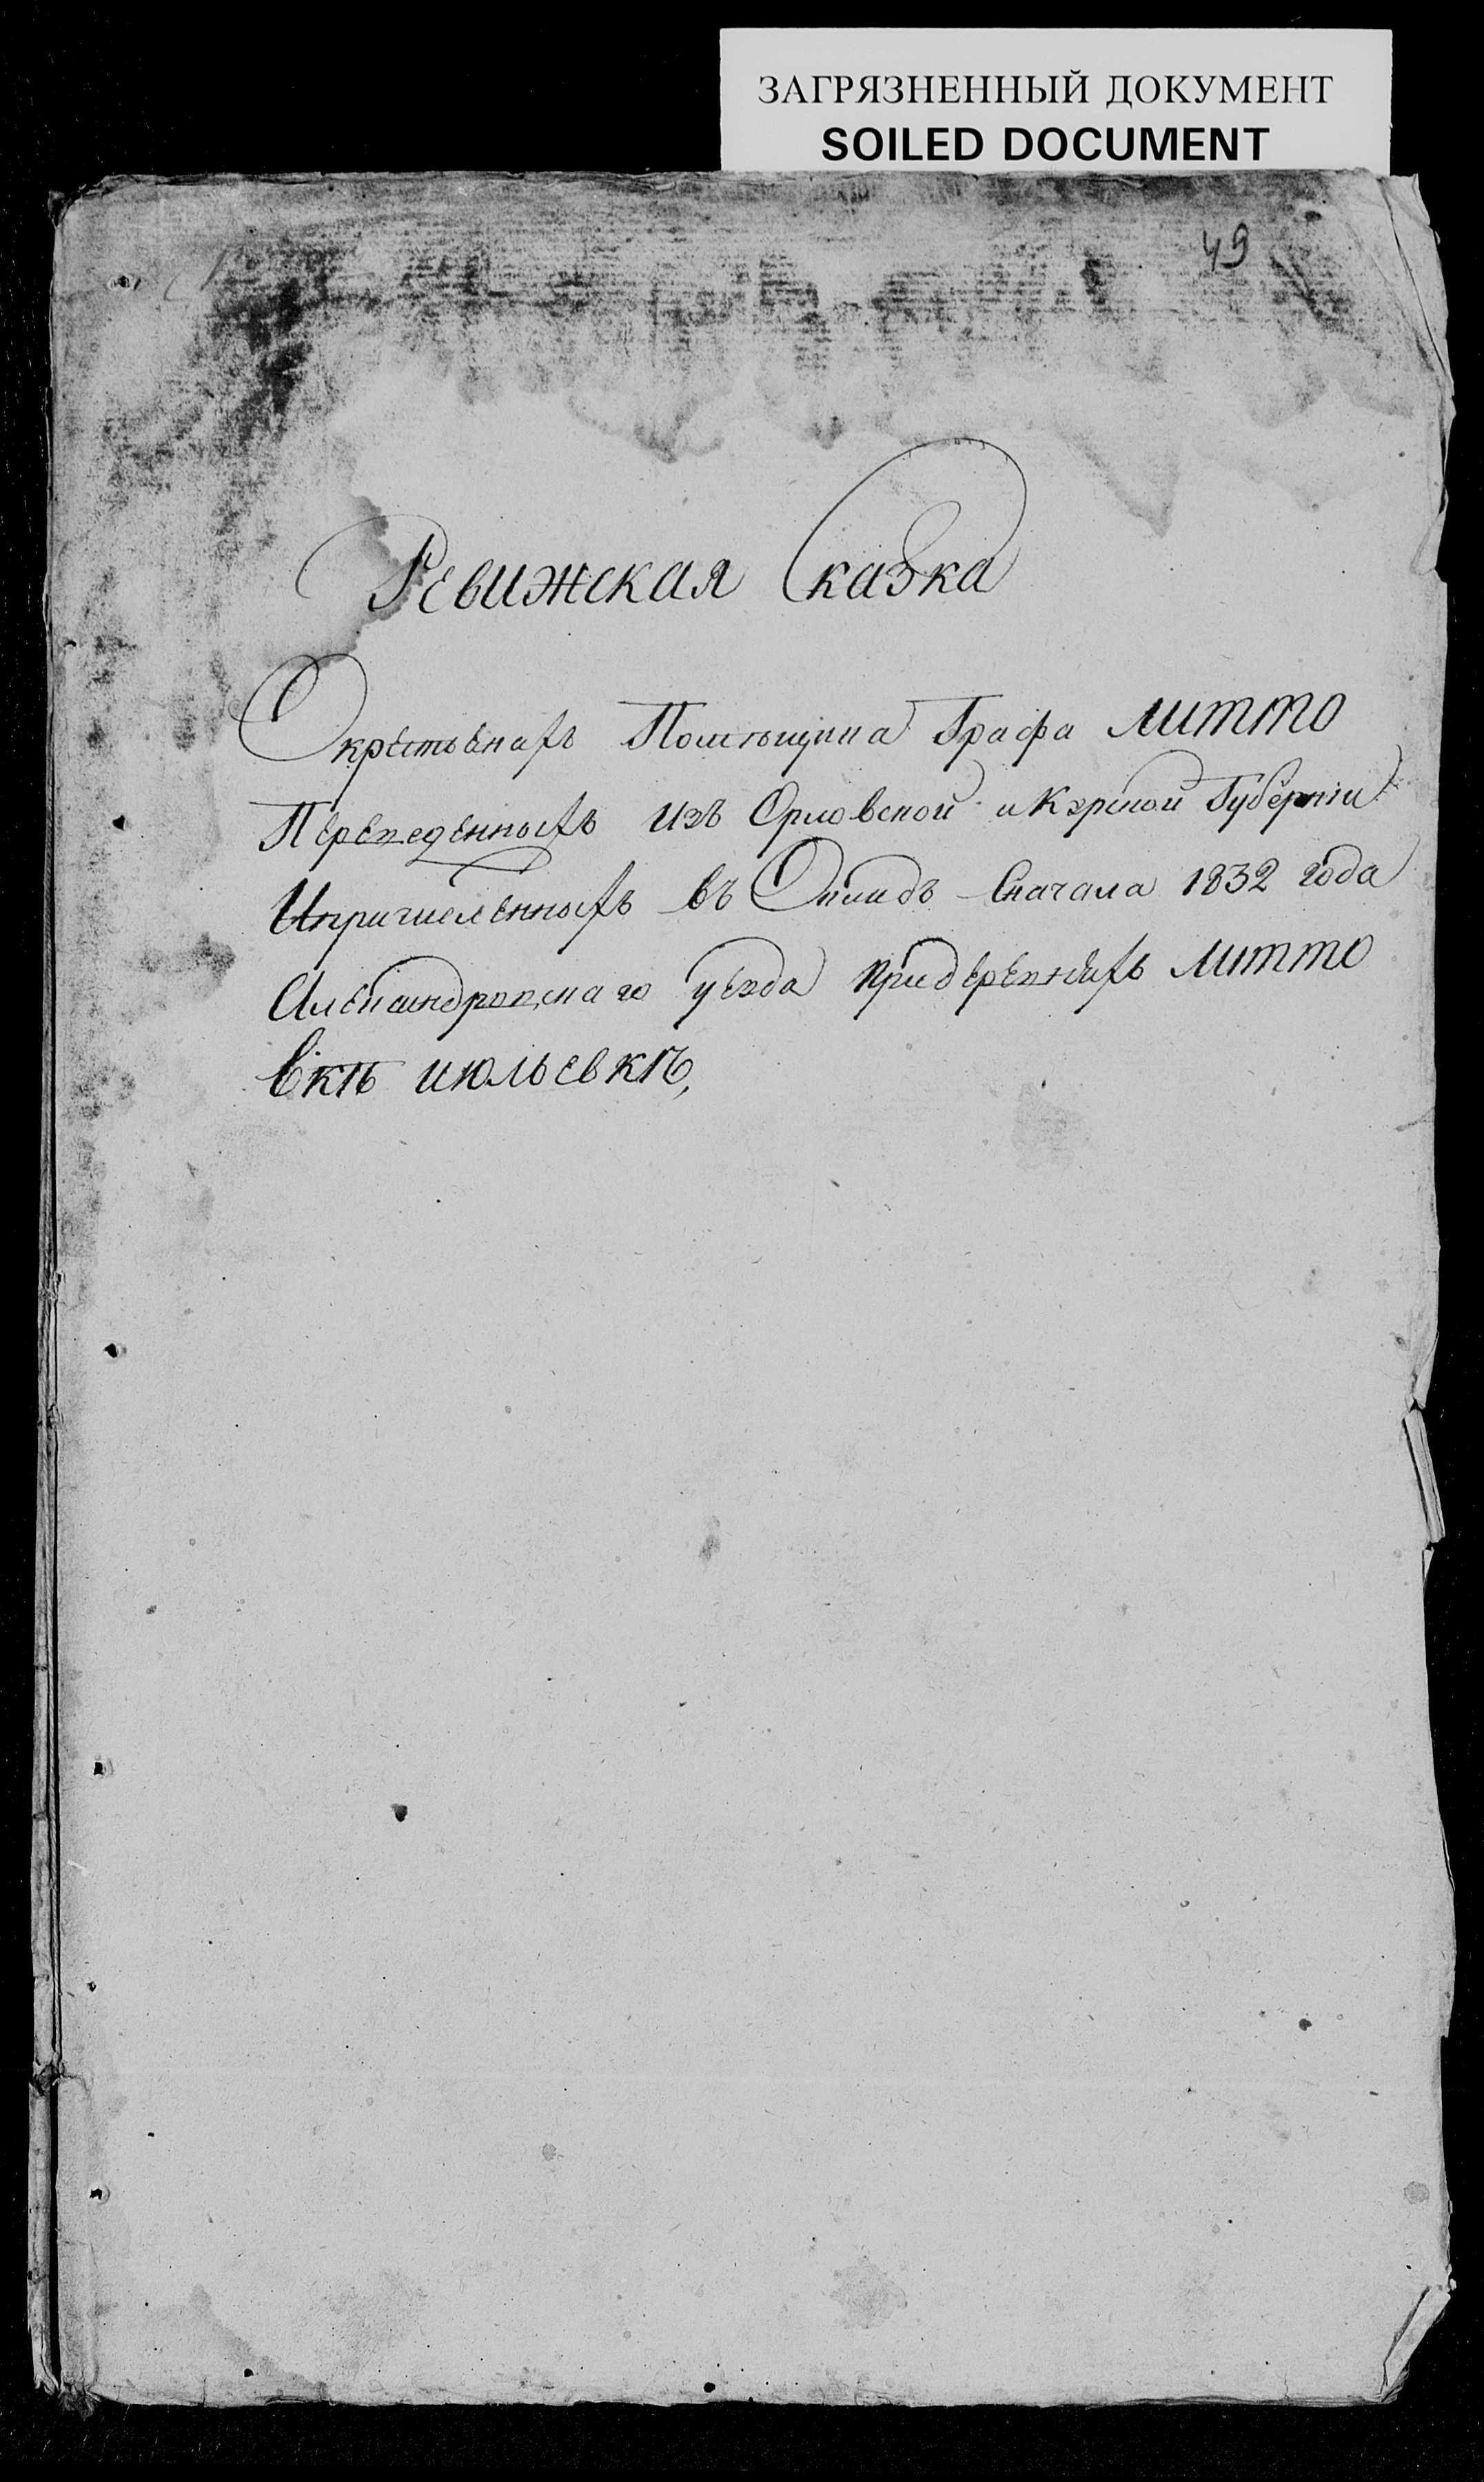 ЗАГРЯЗНЕННЫЙ ДОКУМЕНТ
SOILED DOCUMENT
49
Ревижская Сказка
Окрестьенахъ Помѣщика Графа Литто
Переведенныхъ изъ Орловской и Курской Губерніи
Ипричисленныхъ въ Окладъ Сначала 1832 года
Александровскаго уезда придеревняхъ Литто
вкѣ июльевкѣ,